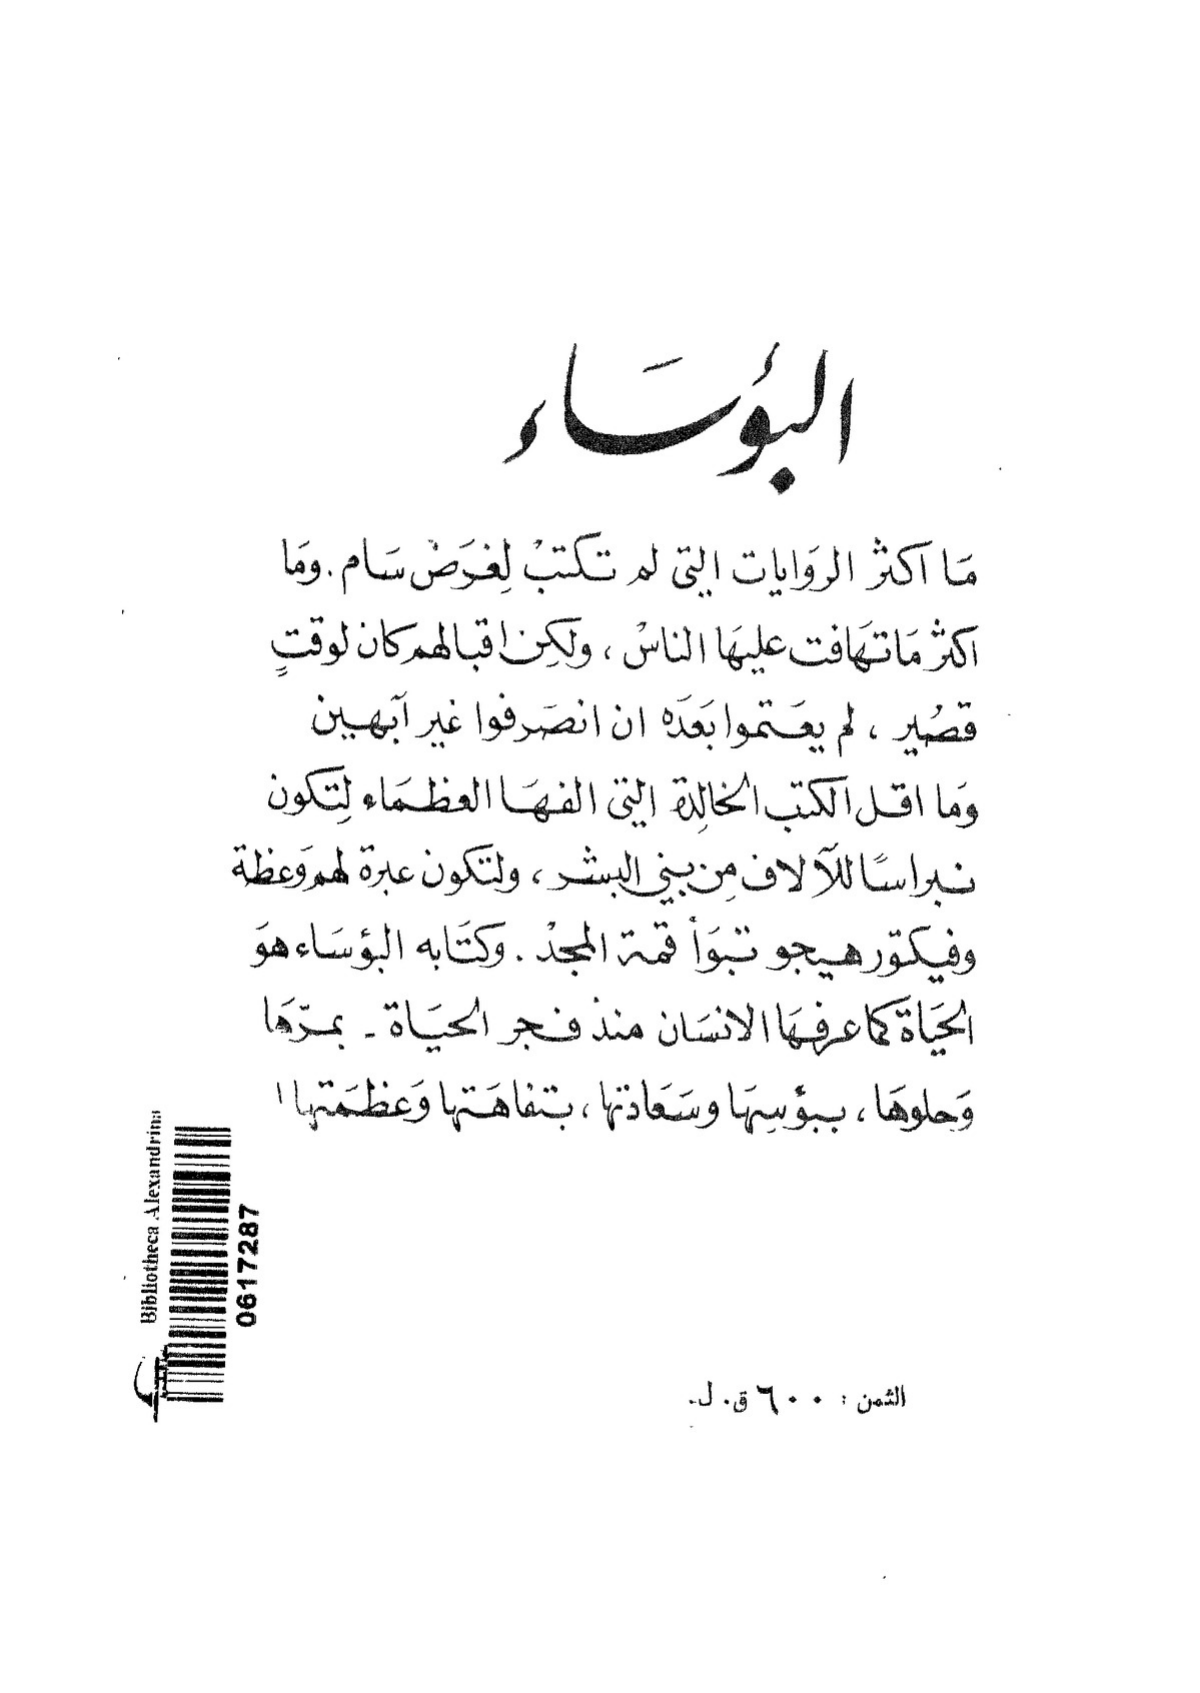 البؤسَاء
مَا اكثر الروَايات التي لم تكتبْ لِغرَضْ سَام . ومَا
اكثر مَا تهَافت عليهَا الناسْ ، ولكِن اقبالهم كان لوقتٍ
قصُير ، لم يعَتموا بعَدَه ان انصَرفوا غير آبهين
ومَا اقل الكتب الخالِدة التي الفهَا العظمَاء لِتكون
نبراسًا للآلاف مِن بني البشر ، ولتكون عبرة لهم وَعظة
وفيكتور هيجو تبوَأ قمة المجدْ . وكتَابه البؤسَاء هوَ
الحيَاة كما عرفهَا الانسَان منذ فجر الحيَاة - بمرّهَا
وَحلوهَا ، ببؤسِهَا وسَعَادتها ، بتفاهَتها وَعظمَتها !
Bibliotheca Alexandrina
0617287
الثمن : ٦٠٠ ق. ل.